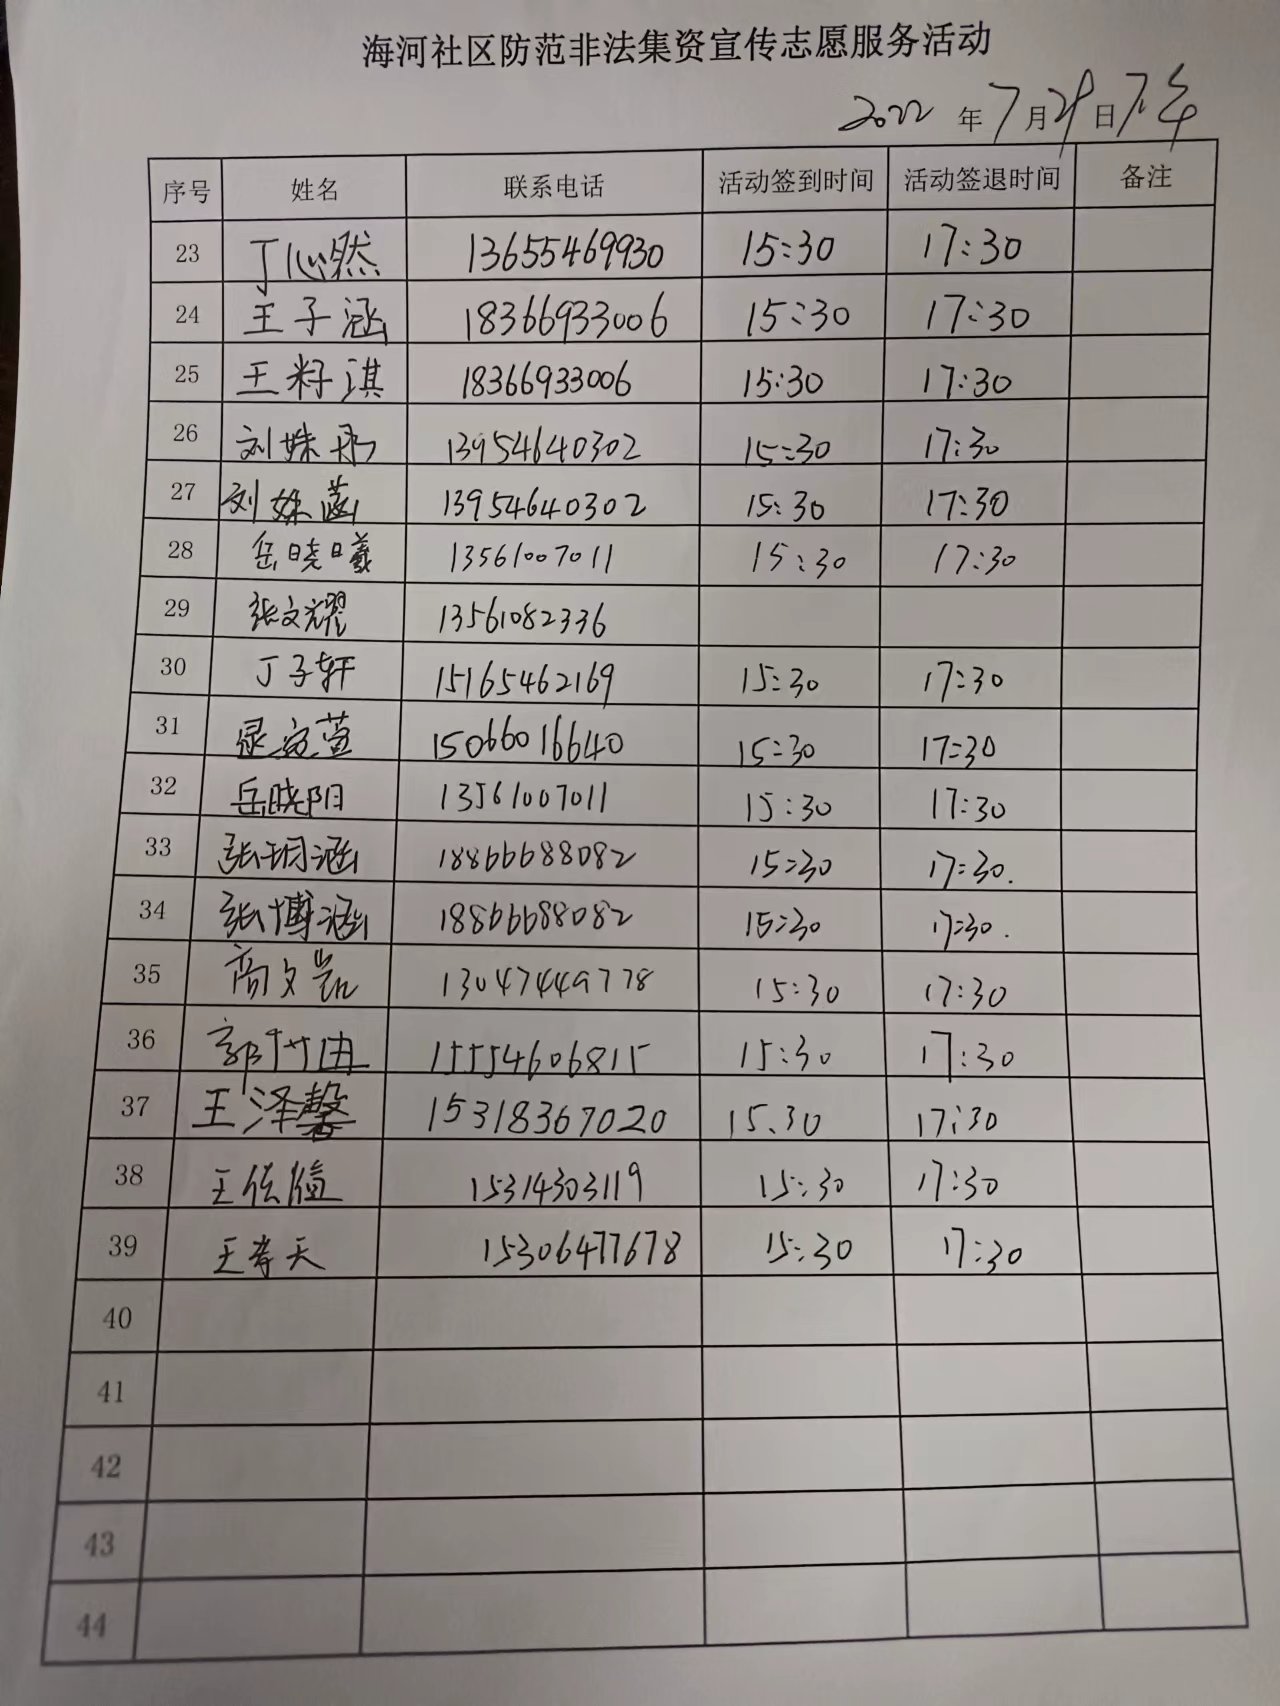 海河社区防范非法集资宣传志愿服务活动
2022 年 7 月 29 日 下午
序号 姓名 联系电话 活动签到时间 活动签退时间 备注
23 丁心然 13655469930 15:30 17:30
24 王子涵 18366933006 15:30 17:30
25 王籽淇 18366933006 15:30 17:30
26 刘姝彤 13954640302 15:30 17:30
27 刘姝菡 13954640302 15:30 17:30
28 岳晓曦 13561007011 15:30 17:30
29 张文耀 13561082336
30 丁子轩 15165462169 15:30 17:30
31 15066016640 15:30 17:30
32 岳晓阳 13561007011 15:30 17:30
33 张玥涵 18866688082 15:30 17:30.
34 张博涵 18866688082 15:30 17:30.
35 高文凯 13047449778 15:30 17:30
36 15554606815 15:30 17:30
37 王泽馨 15318367020 15.30 17:30
38 15314303119 15:30 17:30
39 王孝天 15306477678 15:30 17:30
40
41
42
43
44